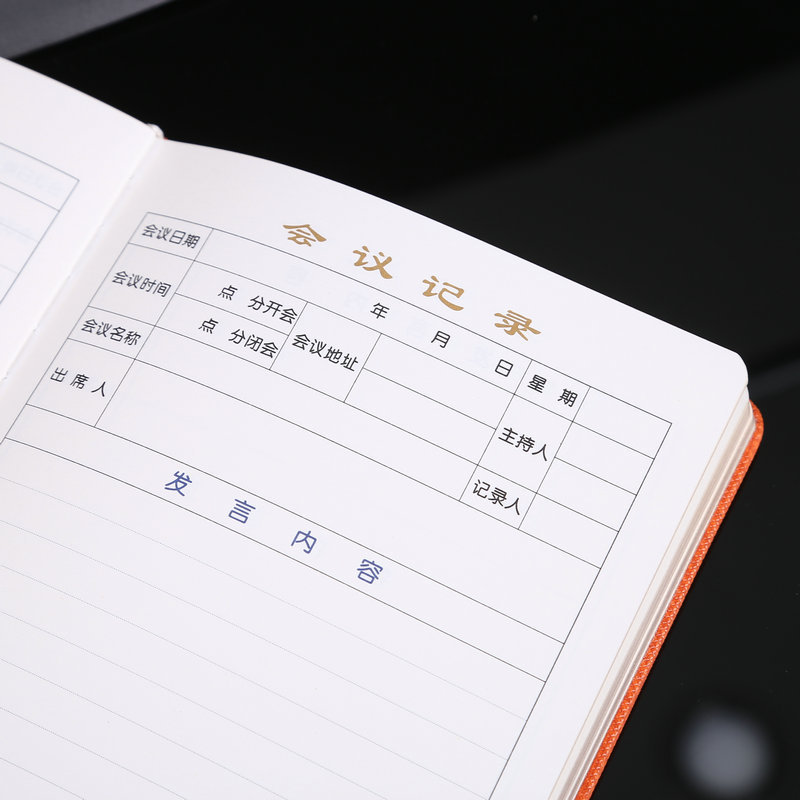 会议记录
会议日期 年 月 日 星期
会议时间 点 分开会 会议地址 主持人
点 分闭会
会议名称 记录人
出席人
发言内容